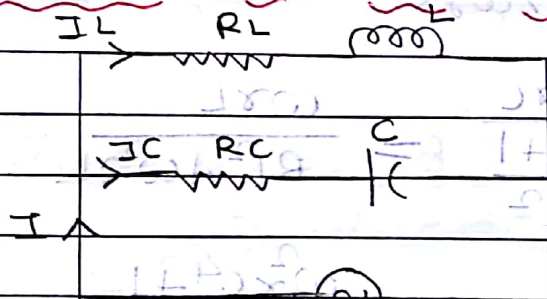 IL RL L
IC RC C
I